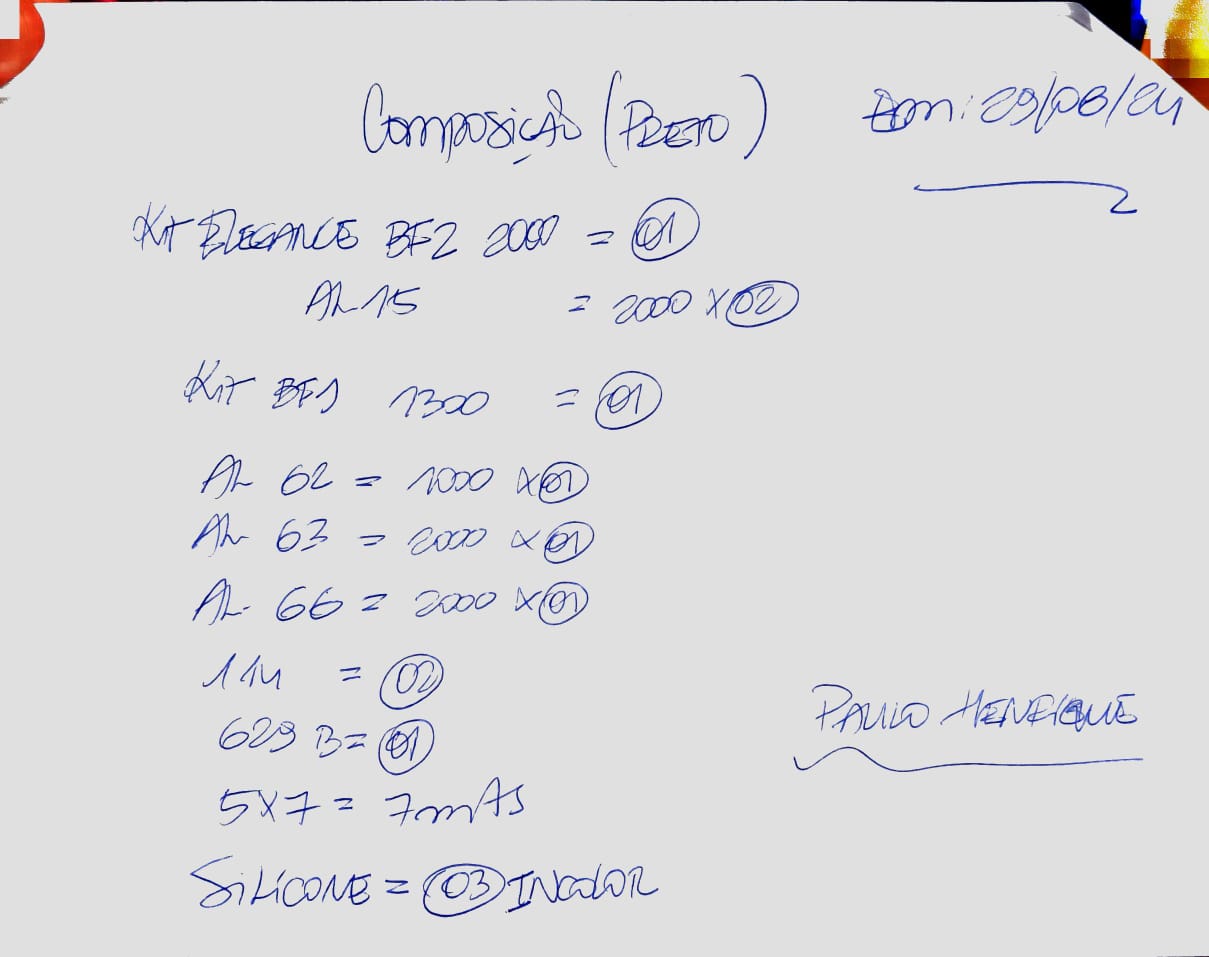 Composição (PRETO)
Em: 29/08/24
KIT ELEGANCE BF2 2000 = 01
AL 15 = 2000 X 02
KIT BF1 1300 = 01
AL 62 = 1000 X 01
AL 63 = 2000 X 01
AL- 66 = 2000 X 01
114 = 02
629 B = 01
5X7 = 7mts
SILICONE = 03 INCOLOR
PAULO HENRIQUE